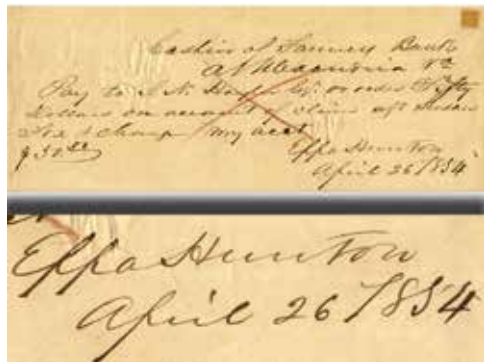 Cashier of Farmers Bank
At Alexandria Va
Pay to or order Fifty
dollars on account of
& charge my acct
Eppa Hunton
April 26 / 854
Eppa Hunton
April 26 / 854